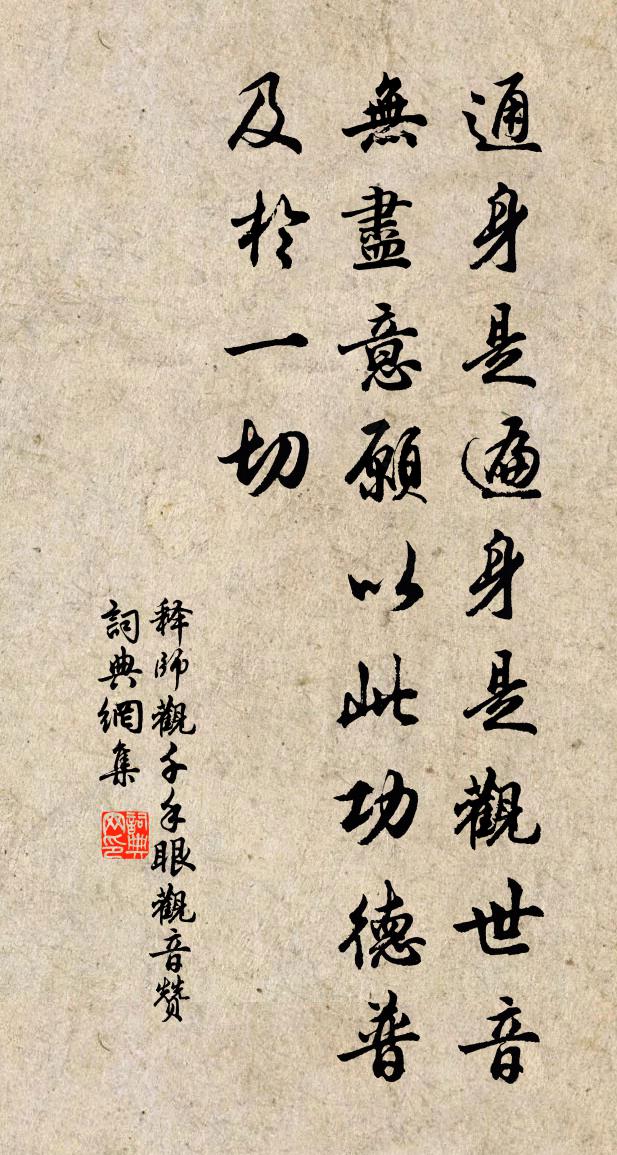 通身是遍身是觀世音
無盡意願以此功德普
及於一切
释師觀千手眼觀音赞
詞典網集
詞典网印